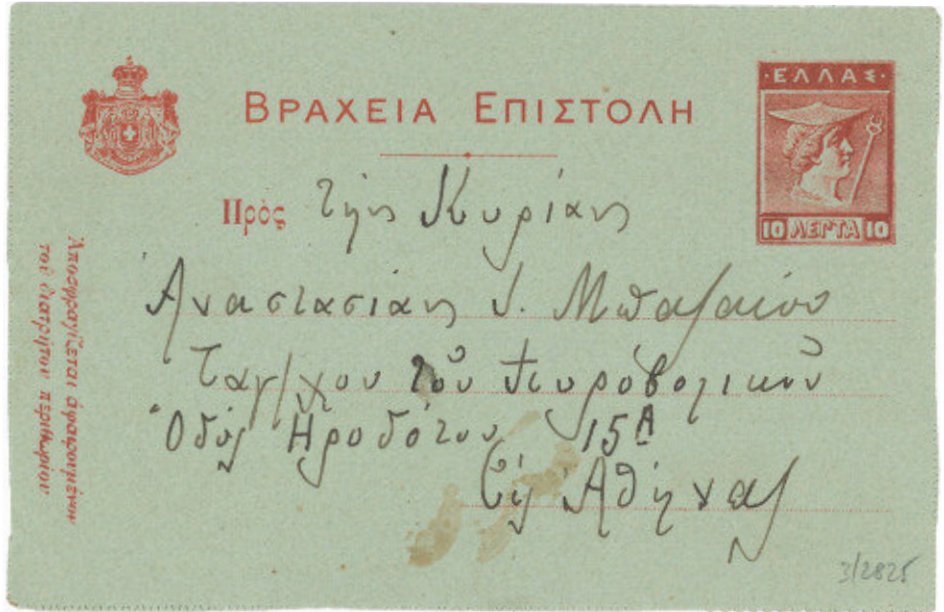 ΒΡΑΧΕΙΑ ΕΠΙΣΤΟΛΗ
·ΕΛΛΑΣ·
10 ΛΕΠΤΑ 10
Πρὸς τὴν Κυρίαν
Ἀναστασίαν Ι. Μπαφαίου
Ταγ/χου τοῦ Πυροβολικοῦ
Ὁδὸς Ἡροδότου 15Α
Εἰς Ἀθήνας
Ἀποσφραγίζεται ἀφαιρουμένου
τοῦ διατρήτου περιθωρίου
3/2825